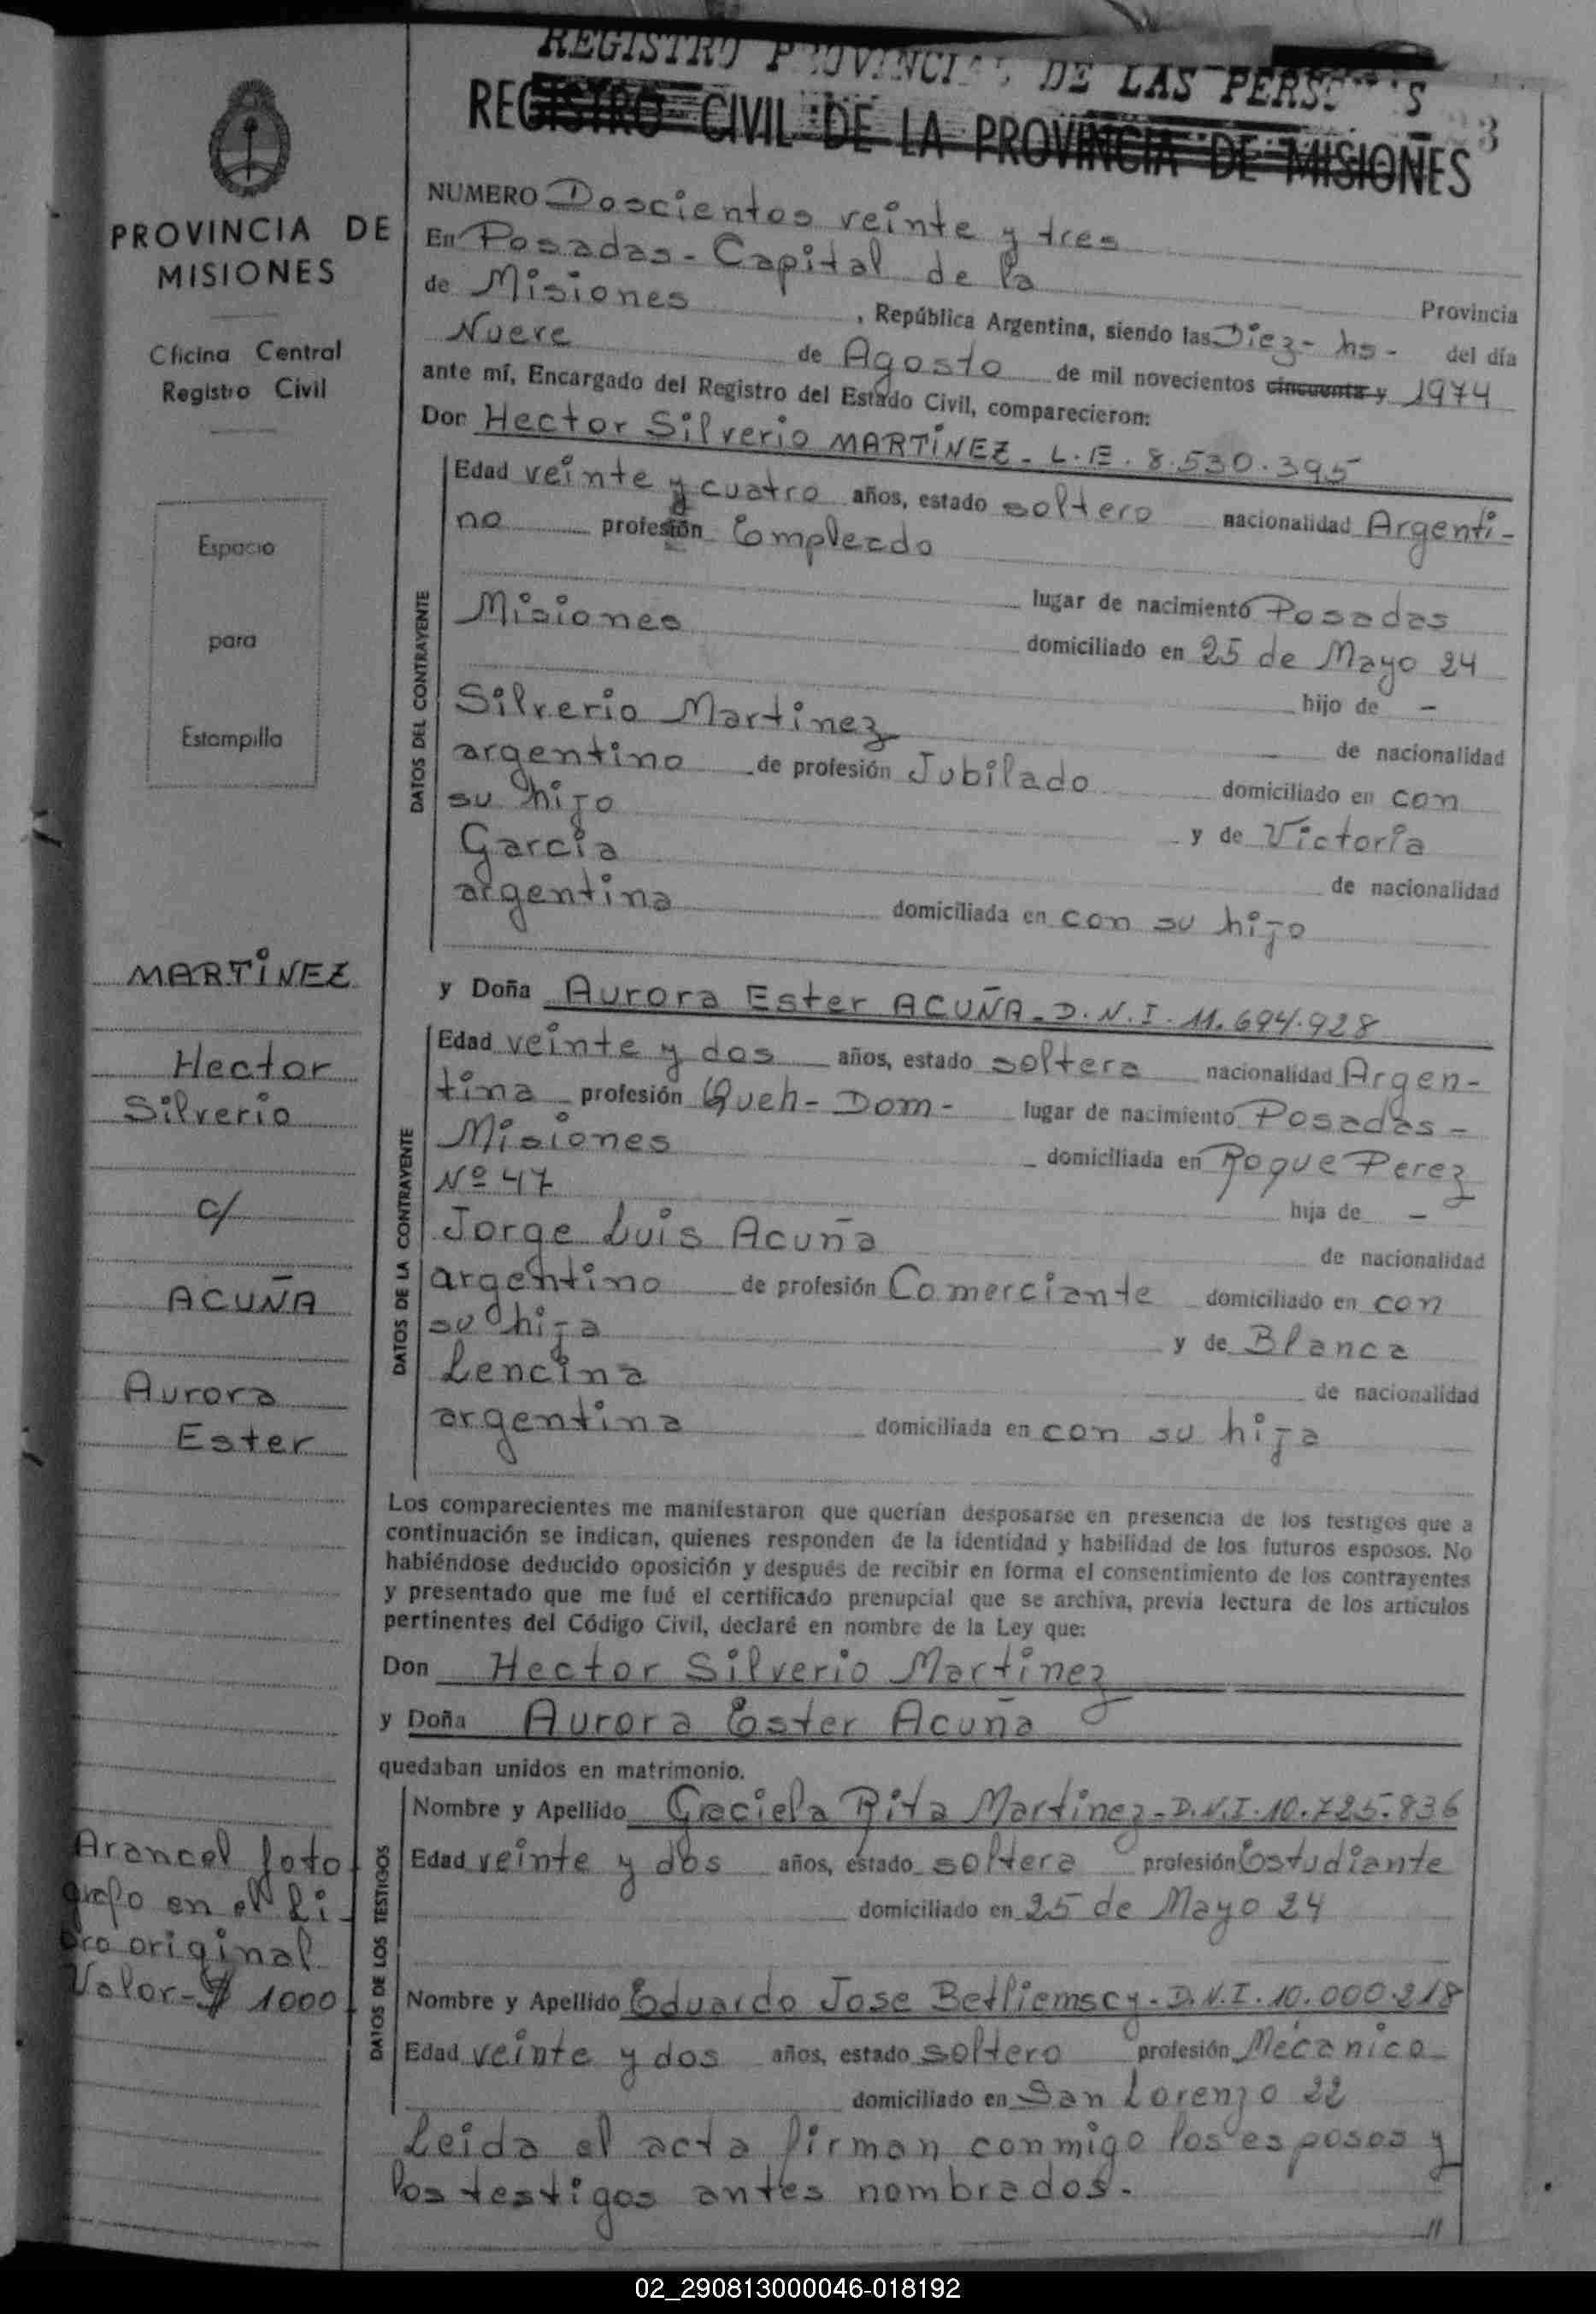 REGISTRO PROVINCIAL DE LAS PERSONAS
REGISTRO CIVIL DE LA PROVINCIA DE MISIONES
PROVINCIA DE
MISIONES
Oficina Central
Registro Civil
Espacio
para
Estampilla
MARTÍNEZ
Hector
Silverio
c/
ACUÑA
Aurora
Ester
Arancel foto
grafo en el li-
bro original
Valor-$ 1000
NUMERO Doscientos veinte y tres
En Posadas - Capital de la
Provincia
de Misiones, República Argentina, siendo las Diez- hs- del día
Nueve de Agosto de mil novecientos cincuenta y 1974
ante mí, Encargado del Registro del Estado Civil, comparecieron:
Don Hector Silverio MARTÍNEZ - L.E. 8.530.395
DATOS DEL CONTRAYENTE
Edad veinte y cuatro años, estado soltero nacionalidad Argenti-
no profesión Empleado
lugar de nacimiento Posadas
Misiones domiciliado en 25 de Mayo 24
hijo de -
Silverio Martinez de nacionalidad
argentino de profesión Jubilado domiciliado en con
su hijo y de Victoria
Garcia de nacionalidad
argentina domiciliada en con su hijo
y Doña Aurora Ester ACUÑA - D.N.I. 11.694.928
DATOS DE LA CONTRAYENTE
Edad veinte y dos años, estado soltera nacionalidad Argen-
tina profesión Queh- Dom- lugar de nacimiento Posadas -
Misiones domiciliada en Roque Perez
Nº 47 hija de -
Jorge Luis Acuña de nacionalidad
argentino de profesión Comerciante domiciliado en con
su hija y de Blanca
Lencina de nacionalidad
argentina domiciliada en con su hija
Los comparecientes me manifestaron que querían desposarse en presencia de los testigos que a
continuación se indican, quienes responden de la identidad y habilidad de los futuros esposos. No
habiéndose deducido oposición y después de recibir en forma el consentimiento de los contrayentes
y presentado que me fué el certificado prenupcial que se archiva, previa lectura de los artículos
pertinentes del Código Civil, declaré en nombre de la Ley que:
Don Hector Silverio Martinez
y Doña Aurora Ester Acuña
quedaban unidos en matrimonio.
DATOS DE LOS TESTIGOS
Nombre y Apellido Graciela Rita Martinez - D.N.I. 10.725.836
Edad veinte y dos años, estado soltera profesión Estudiante
domiciliado en 25 de Mayo 24
Nombre y Apellido Eduardo Jose Betliemscy - D.N.I. 10.000.218
Edad veinte y dos años, estado soltero profesión Mecánico
domiciliado en San Lorenzo 22
Leida el acta firman conmigo los esposos y
los testigos antes nombrados.
//
02_290813000046-018192